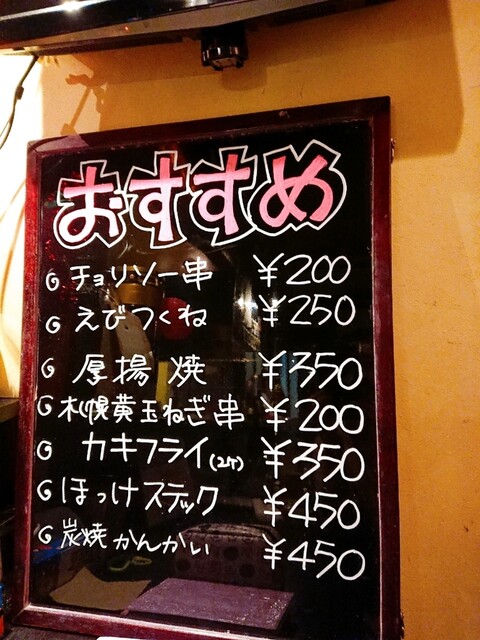 おすすめ
チョリソー串 ¥200
えびつくね ¥250
厚揚焼 ¥350
札幌黄玉ねぎ串 ¥200
カキフライ(2ケ) ¥350
ほっけステック ¥450
炭焼かんかい ¥450